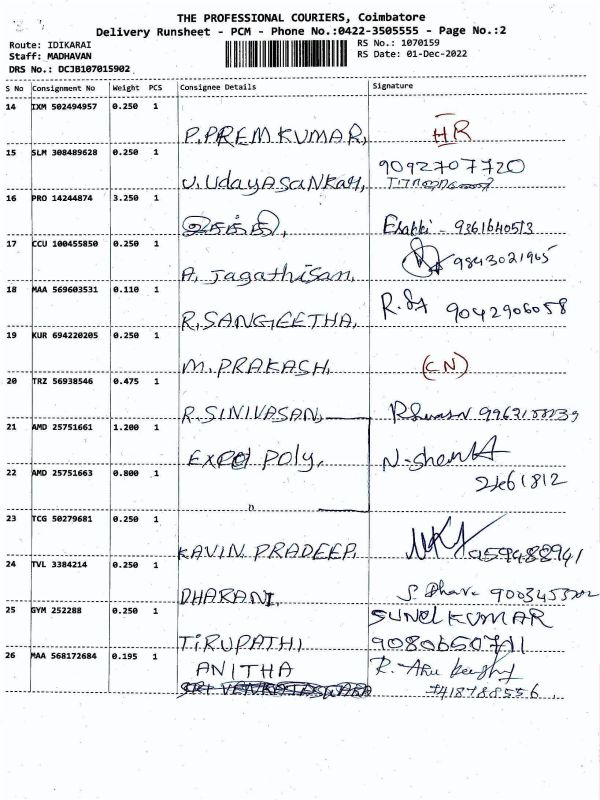 THE PROFESSIONAL COURIERS, Coimbatore
Delivery Runsheet - PCM - Phone No.:0422-3505555 - Page No.:2
Route: IDIKARAI
Staff: MADHAVAN
DRS No.: DCJB107015902
RS No.: 1070159
RS Date: 01-Dec-2022
S No Consignment No Weight PCS Consignee Details Signature
14 IXM 502494957 0.250 1
P. PREM KUMAR, HR
15 SLM 308489628 0.250 1
9092707720
U. UdayASANKAR,
16 PRO 14244874 3.250 1
இசக்கி, Esakki - 9361640513
17 CCU 100455850 0.250 1
9843021965
A. Jagathisan,
18 MAA 569603531 0.110 1
9042906058
R. SANGEETHA,
19 KUR 694220205 0.250 1
M. PRAKASH, (CN)
20 TRZ 56938546 0.475 1
R. SINIVASAN,
21 AMD 25751661 1.200 1
Expo poly,
22 AMD 25751663 0.800 1
"
23 TCG 50279681 0.250 1
KAVIN PRADEEP, 9594882941
24 TVL 3384214 0.250 1
DHARANI,
25 GYM 252288 0.250 1
SUNIL KUMAR
TIRUPATHI 9080650711
26 MAA 568172684 0.195 1
ANITHA
7418788556